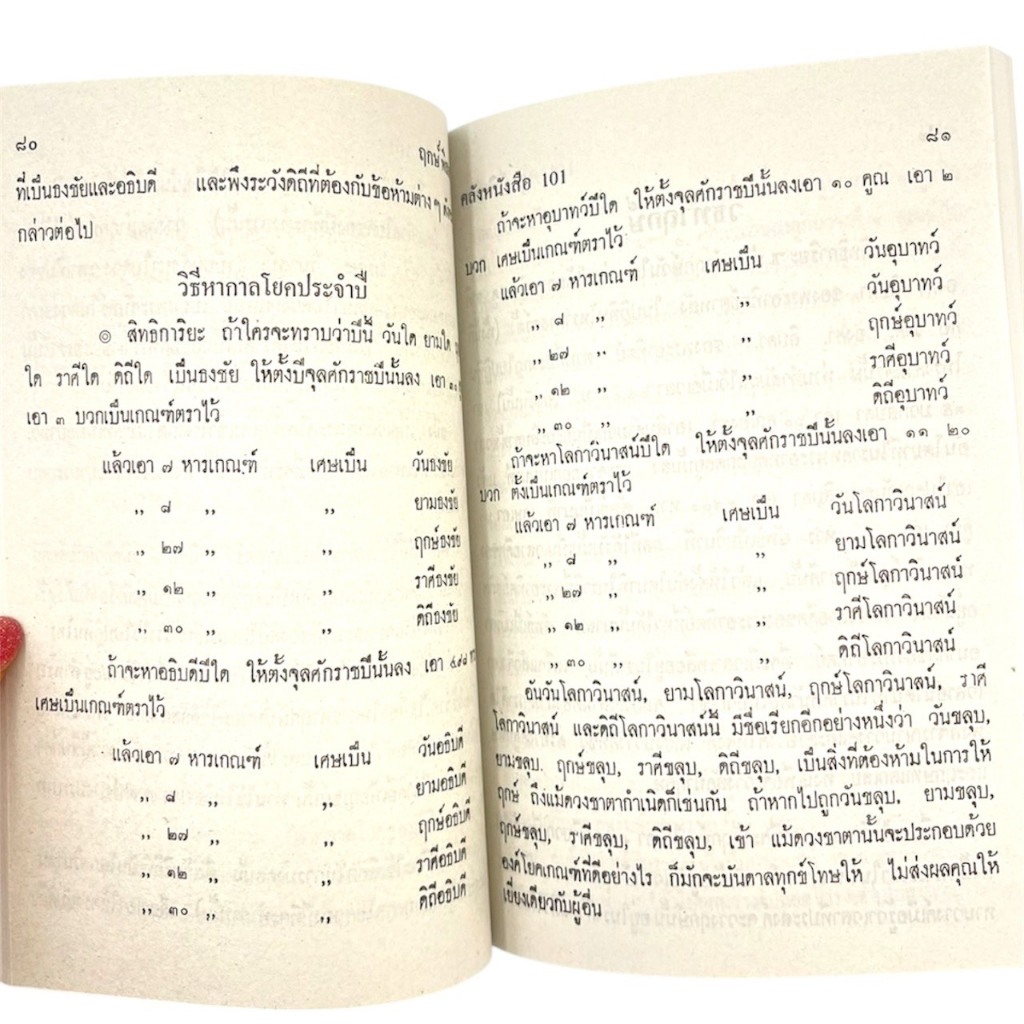 ๘๐
ที่เป็นธงชัยและอธิบดี และพึงระวังดิถีที่ต้องกับข้อห้ามต่าง ๆ
กล่าวต่อไป
วิธีหากาลโยคประจำปี
๏ สิทธิการิยะ ถ้าใครจะทราบว่าปีนี้ วันใด ยามใด
ใด ราศีใด ดิถีใด เป็นธงชัย ให้ตั้งปีจุลศักราชปีนั้นลง เอา
เอา ๓ บวกเป็นเกณฑ์ตราไว้
แล้วเอา ๗ หารเกณฑ์ เศษเป็น วันธงชัย
,, ๘ ,, ,, ยามธงชัย
,, ๒๗ ,, ,, ฤกษ์ธงชัย
,, ๑๒ ,, ,, ราศีธงชัย
,, ๓๐ ,, ,, ดิถีธงชัย
ถ้าจะหาอธิบดีปีใด ให้ตั้งจุลศักราชปีนั้นลง เอา
เศษเป็นเกณฑ์ตราไว้
แล้วเอา ๗ หารเกณฑ์ เศษเป็น วันอธิบดี
,, ๘ ,, ,, ยามอธิบดี
,, ๒๗ ,, ,, ฤกษ์อธิบดี
,, ๑๒ ,, ,, ราศีอธิบดี
,, ๓๐ ,, ,, ดิถีอธิบดี
๘๑
คลังหนังสือ 101
ถ้าจะหาอุบาทว์ปีใด ให้ตั้งจุลศักราชปีนั้นลงเอา ๑๐ คูณ เอา ๒
บวก เศษเป็นเกณฑ์ตราไว้
แล้วเอา ๗ หารเกณฑ์ เศษเป็น วันอุบาทว์
,, ๘ ,, ,, วันอุบาทว์
,, ๒๗ ,, ,, ฤกษ์อุบาทว์
,, ๑๒ ,, ,, ราศีอุบาทว์
,, ๓๐ ,, ,, ดิถีอุบาทว์
ถ้าจะหาโลกาวินาสน์ปีใด ให้ตั้งจุลศักราชปีนั้นลงเอา ๑๑ ๒๐
บวก ตั้งเป็นเกณฑ์ตราไว้
แล้วเอา ๗ หารเกณฑ์ เศษเป็น วันโลกาวินาสน์
,, ๘ ,, ,, ยามโลกาวินาสน์
,, ๒๗ ,, ,, ฤกษ์โลกาวินาสน์
,, ๑๒ ,, ,, ราศีโลกาวินาสน์
,, ๓๐ ,, ,, ดิถีโลกาวินาสน์
อันวันโลกาวินาสน์, ยามโลกาวินาสน์, ฤกษ์โลกาวินาสน์, ราศี
โลกาวินาสน์ และดิถีโลกาวินาสน์นี้ มีชื่อเรียกอีกอย่างหนึ่งว่า วันขลุบ,
ยามขลุบ. ฤกษ์ขลุบ, ราศีขลุบ, ดิถีขลุบ, เป็นสิ่งที่ต้องห้ามในการให้
ฤกษ์ ถึงแม้ดวงชาตากำเนิดก็เช่นกัน ถ้าหากไปถูกวันขลุบ, ยามขลุบ,
ฤกษ์ขลุบ, ราศีขลุบ, ดิถีขลุบ, เข้า แม้ดวงชาตานั้นจะประกอบด้วย
องค์โยคเกณฑ์ที่ดีอย่างไร ก็มักจะบันดาลทุกข์โทษให้ ไม่ส่งผลคุณให้
เยี่ยงเดียวกับผู้อื่น